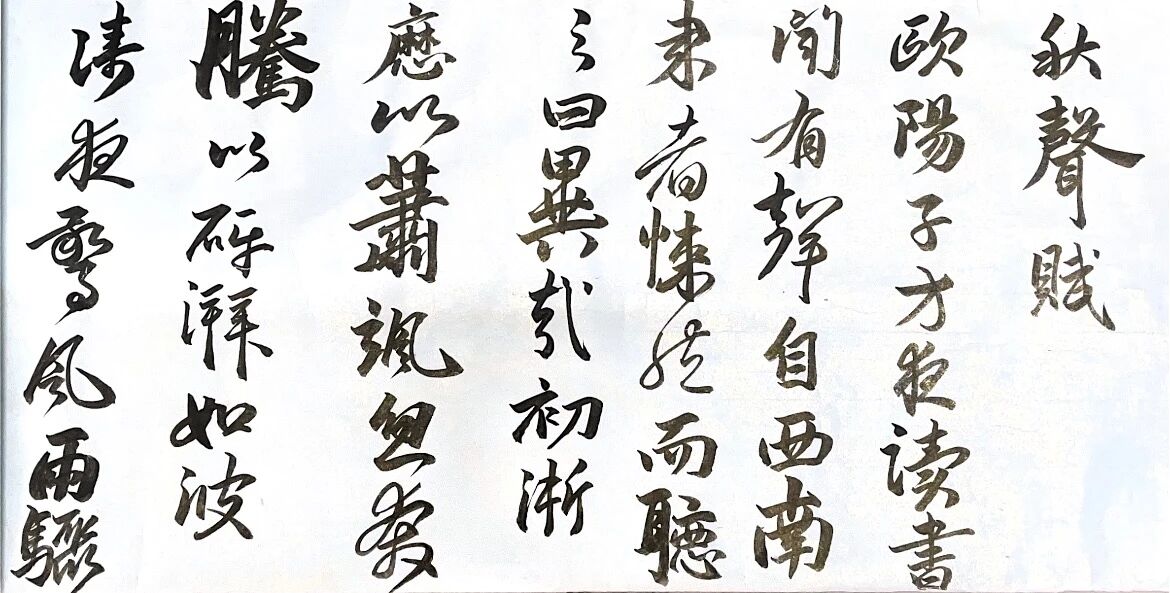 秋聲賦
歐陽子方夜讀書
聞有聲自西南
来者悚然而聽
之曰異哉初淅
歷以蕭颯忽奔
騰以砰湃如波
濤夜驚風雨驟